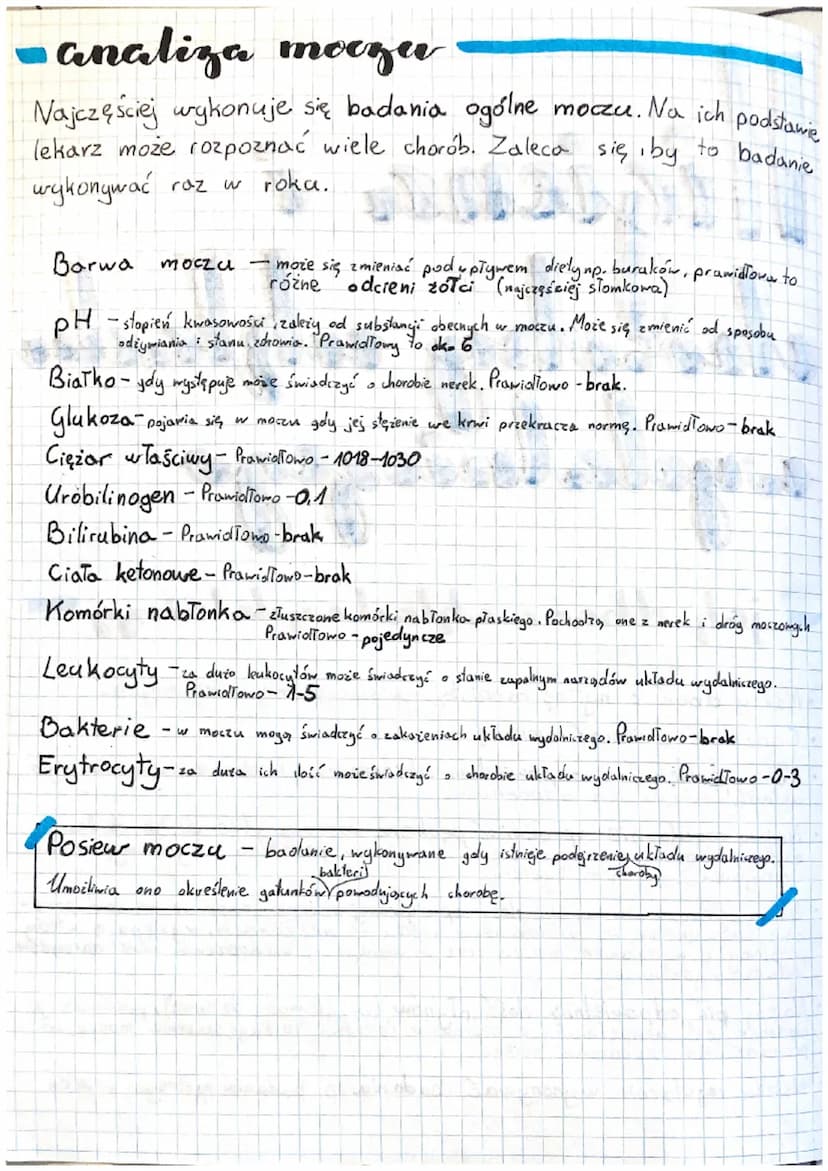 analiza moczu
Najczęściej wykonuje się badania ogólne moczu. Na ich podstawie
lekarz może rozpoznać wiele chorób. Zaleca się, by to badanie
wykonywać raz w roku.
Barwa moczu - może się zmieniać pod wpływem diety np. buraków, prawidłowa to
różne odcieni żółci (najczęściej słomkowa)
pH - stopień kwasowości, zależy od substancji obecnych w moczu. Może się zmienić od sposobu
odżywiania i stanu zdrowia. Prawidłowy to ok. 6
Białko - gdy występuje może świadczyć o chorobie nerek. Prawidłowo - brak.
Glukoza - pojawia się w moczu gdy jej stężenie we krwi przekracza normę. Prawidłowo - brak
Ciężar właściwy - Prawidłowo - 1018-1030
Urobilinogen - Prawidłowo - 0,1
Bilirubina - Prawidłowo - brak
Ciała ketonowe - Prawidłowo - brak
Komórki nabłonka - złuszczone komórki nabłonka płaskiego. Pochodzą one z nerek i dróg moczowych
Prawidłowo - pojedyncze
Leukocyty - za dużo leukocytów może świadczyć o stanie zapalnym narządów układu wydalniczego.
Prawidłowo - 1-5
Bakterie - w moczu mogą świadczyć o zakażeniach układu wydalniczego. Prawidłowo - brak
Erytrocyty - za duża ich ilość może świadczyć o chorobie układu wydalniczego. Prawidłowo - 0-3
Posiew moczu - badanie, wykonywane gdy istnieje podejrzenie choroby układu wydalniczego.
Umożliwia ono określenie gatunków bakterii powodujących chorobę.